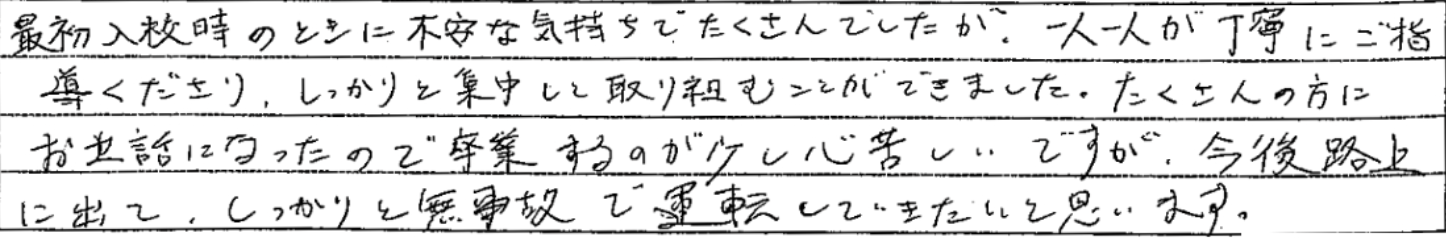 最初入校時のときに不安な気持ちでたくさんでしたが、一人一人が丁寧にご指
導くださり、しっかりと集中して取り組むことができました。たくさんの方に
お世話になったので卒業するのが少し心苦しいですが、今後路上
に出て、しっかりと無事故で運転していきたいと思います。